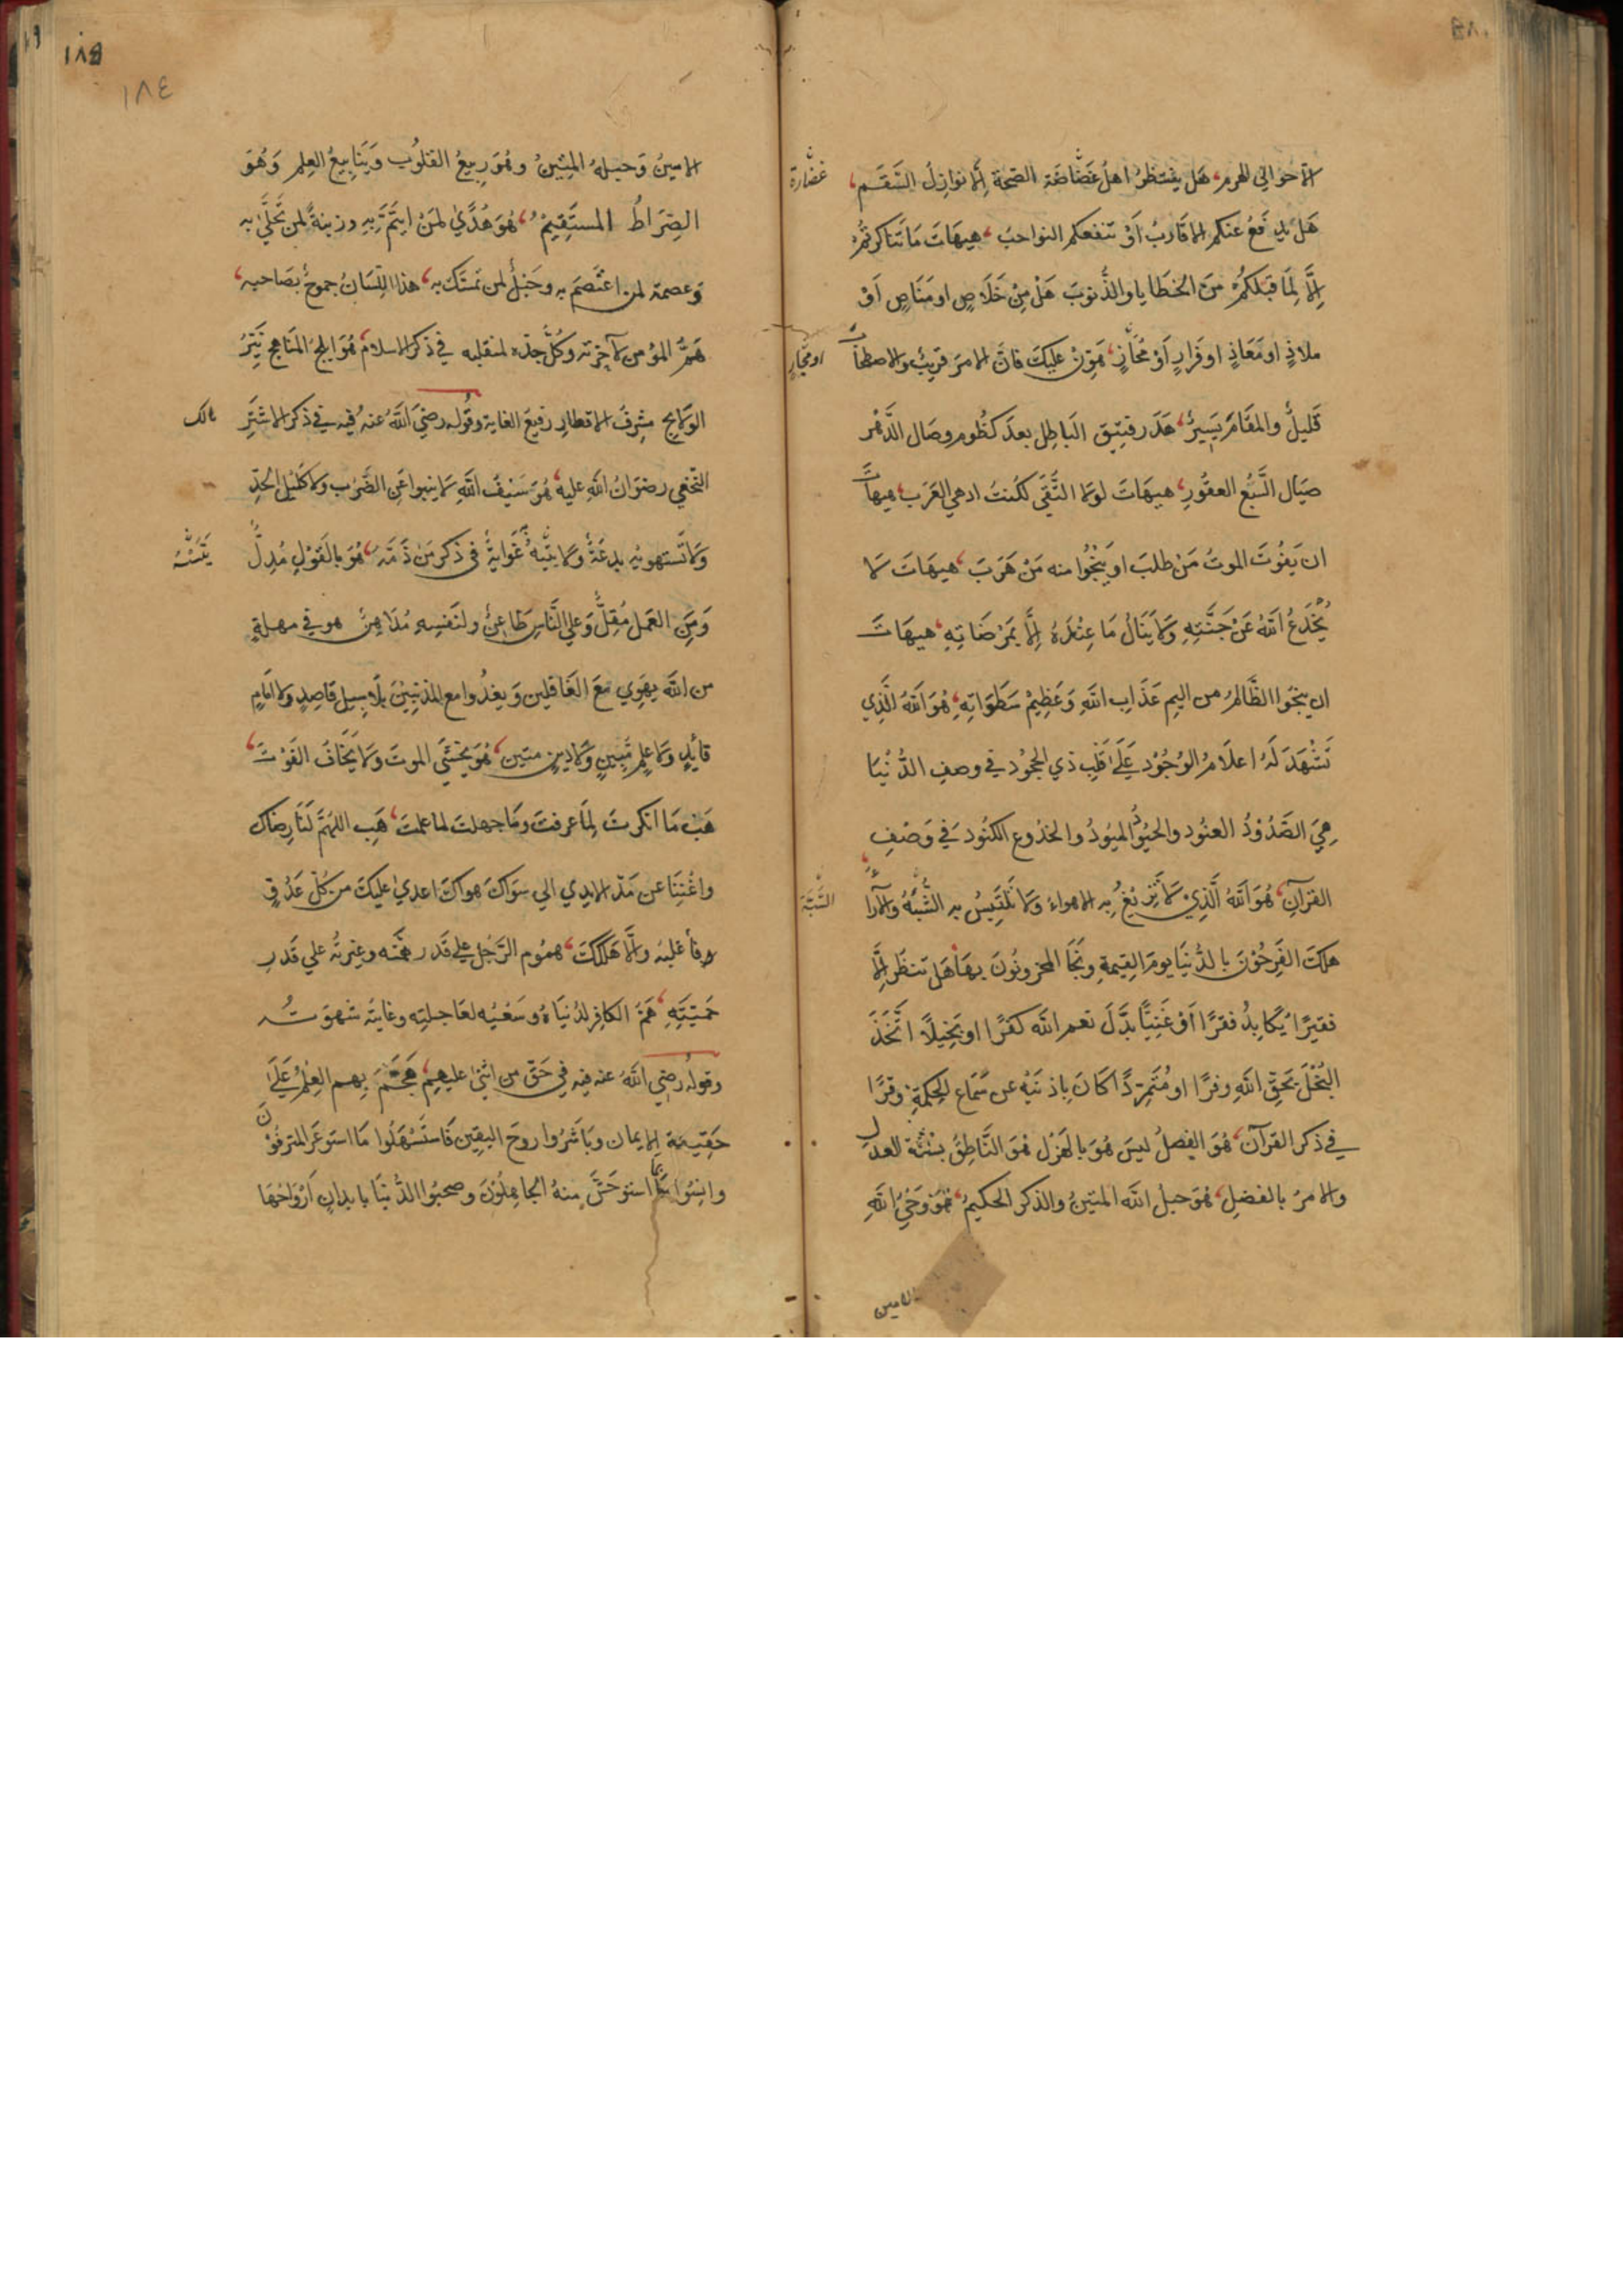 الاحوالي الهرم هل ينتظر اهل غضاضة الصحة الا نوازل السقم
غضارة
هل يدفع عنكم الاقارب او تنفعكم النواحب هيهات ما تناكرتم
الا لما قبلكم من الخطايا والذنوب هل من خلاص او مناص او
ملاذ او معاذ او فرار او مجاز هون عليك فان الامر قريب والاصطحاب
او مجار
قليل والمقام يسير هدر فنيق الباطل بعد كظوم وصال الدهر
صيال السبع العقور هيهات لولا التقى لكنت ادهي العرب هيهات
ان يفوت الموت من طلب او ينجوا منه من هرب هيهات لا
يخدع الله عن جنته ولا ينال ما عنده الا بمرضاته هيهات
ان ينجوا الظالم من اليم عذاب الله وعظيم سطواته هو الله الذي
تشهد له اعلام الوجود علي قلب ذي الجحود في وصف الدنيا
هي الصدود العنود والحيود الميود والخدوع الكنود في وصف
القرآن هو الله الذي لا تزيغ به الاهواء ولا تلتبس به الشبه والآراء
الشبة
هلك الفرحون بالدنيا يوم القيمة ونجا المحزونون بها هل تنظر الا
فقيرا يكابد فقرا او غنيا بدل نعم الله كفرا او بخيلا اتخذ
البخل بحق الله وفرا او متمردا كان باذنيه عن سماع الحكمة وقرا
في ذكر القرآن هو الفصل ليس هو بالهزل هو الناطق بسنة العدل
والامر بالفضل هو حبل الله المتين والذكر الحكيم هو وحي الله
الامين
١٨٤
الامين وحبله المتين وهو ربيع القلوب وينابيع العلم وهو
الصراط المستقيم هو هدي لمن ايتم به وزينة لمن تحلي به
وعصمة لمن اعتصم به وحبل لمن تمسك به هذا اللسان جموح بصاحبه
هم المؤمن لآخرته وكل جده لمنقلبه في ذكر الاسلام هو ابلج المناهج نير
الولايج مشرف الاقطار رفيع الغاية وقوله رضي الله عنه فيه في ذكر الاشتر
مالك
النخعي رضوان الله عليه هو سيف الله لا ينبوا عن الضرب ولا كليل الحد
ولا تستهويه بدعة ولا تتيه به غواية في ذكر من ذمه هو بالقول مدل
ومن العمل مقل وعلي الناس طاعن ولنفسه مداهن هو في مهلة
من الله يهوي مع الغافلين ويغدوا مع المذنبين بلا سبيل قاصد ولا امام
قايد ولا علم مبين ولا دين متين هو يخشي الموت ولا يخاف الفوت
هب ما انكرت لما عرفت وما جهلت لما علمت هب اللهم لنا رضاك
واغننا عن مد الايدي الي سواك هواك اعدي عليك من كل عدو
فاغلبه والا هلكك هموم الرجل علي قدر همته وغيرته علي قدر
حميته هم الكافر لدنياه وسعيه لعاجلته وغايته شهوته
وقوله رضي الله عنه فيه في حق من اثنى عليهم هجم بهم العلم علي
حقيقة الايمان وباشروا روح اليقين فاستسهلوا ما استوعر المترفون
وانسوا بما استوحش منه الجاهلون وصحبوا الدنيا بابدان ارواحها